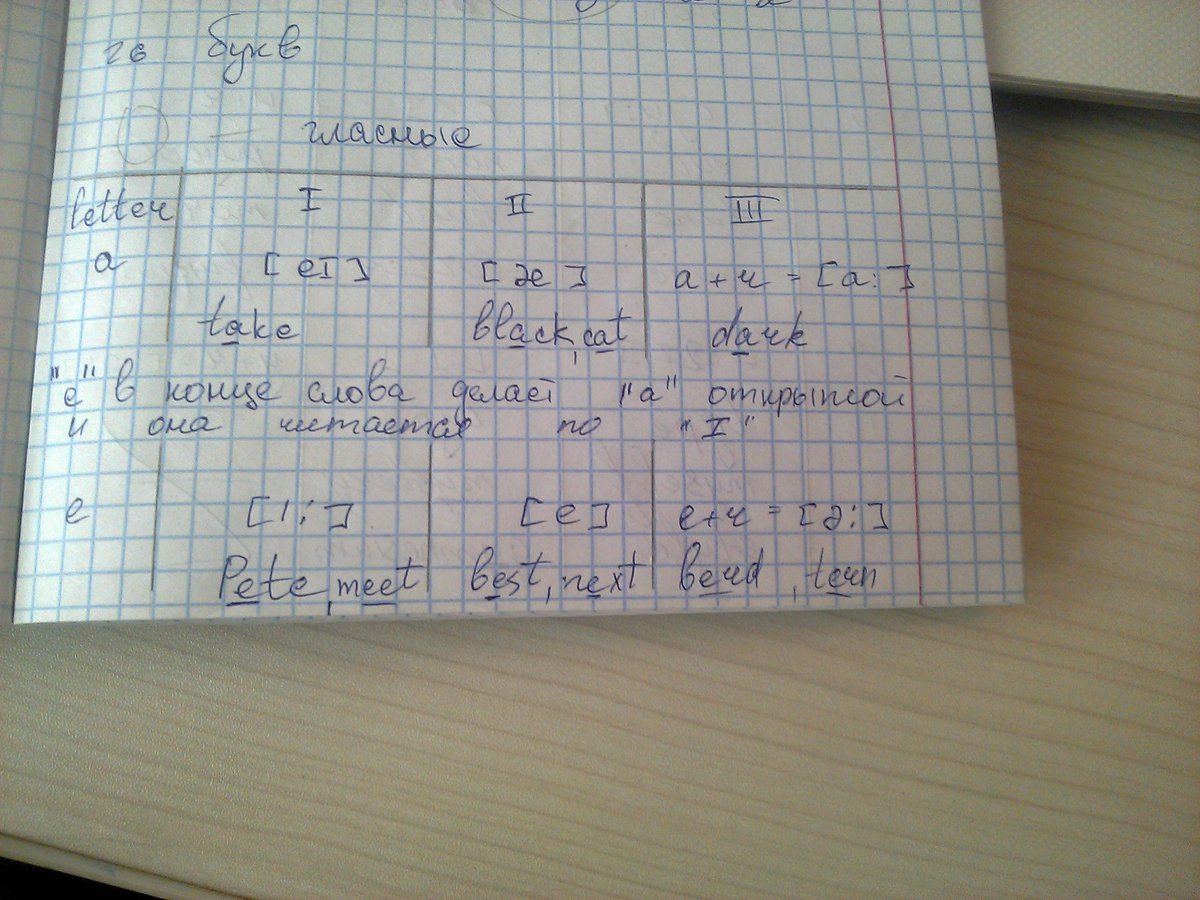 26 букв
— гласные
letter I II III
a [eI] [æ] a+r = [a:]
take black, cat dark
"e" в конце слова делает "a" открытой
и она читается по "I"
e [i:] [e] e+r = [ə:]
Pete, meet best, next berd, tern